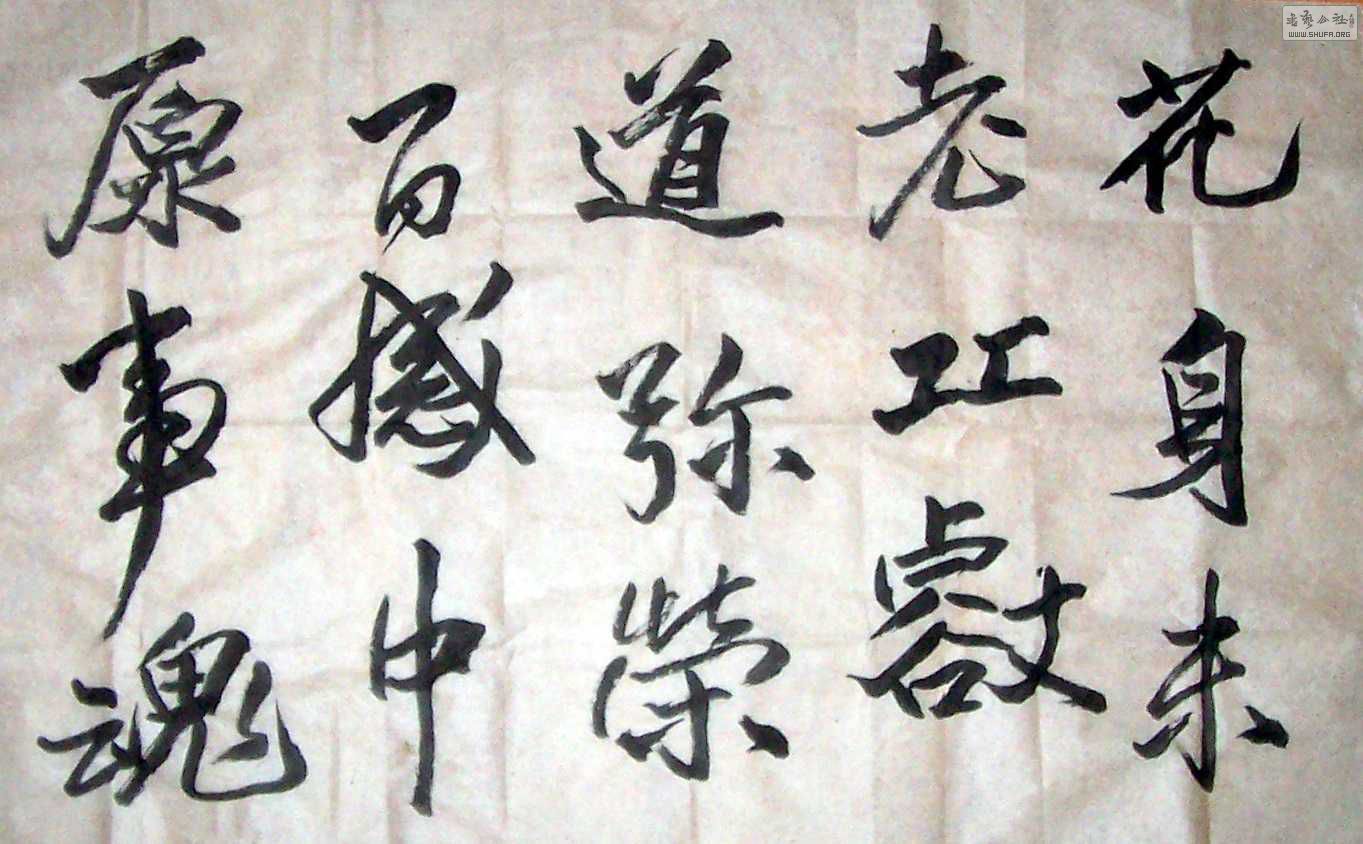 花身未
老工𣦼
道弥榮
百撼中
原事魂
書藝公社
WWW.SHUFA.ORG